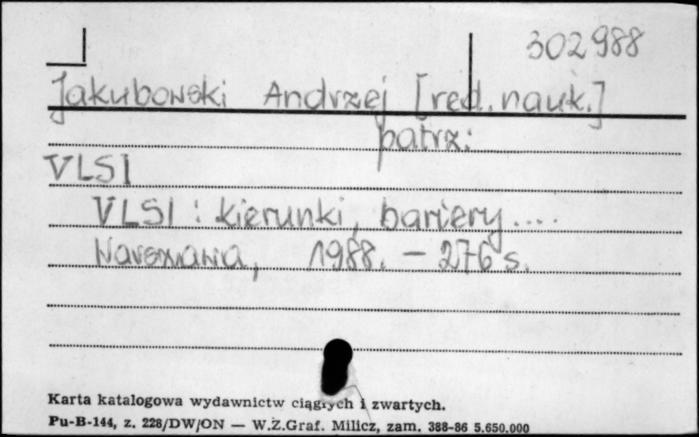 302988
Jakubowski Andrzej [red. nauk.]
patrz:
VLSI
VLSI : kierunki, bariery....
Warszawa, 1988. – 276 s.
Karta katalogowa wydawnictw ciągłych i zwartych.
Pu-B-144, z. 228/DW/ON — W.Z.Graf. Milicz, zam. 388-86 5.650.000